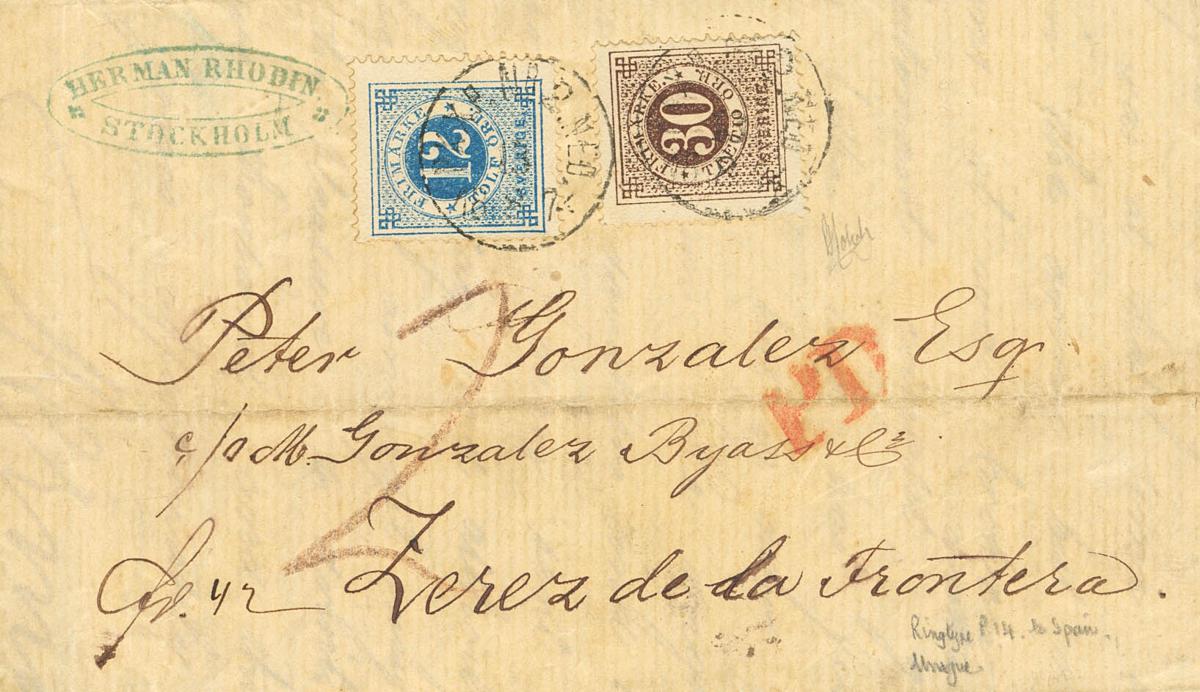 HERMAN RHODIN
STOCKHOLM
FRIMÄRKE
TOLF ÖRE
12
SVERIGE
FRIMÄRKE
TRETTIO ÖRE
30
SVERIGE
PKXP. Nº 2. NED.
Peter Gonzalez Esq
PD
c/o M. Gonzalez Byass & Cº
Xerez de la Frontera.
Ringtype P.14. to Spain.
Unique